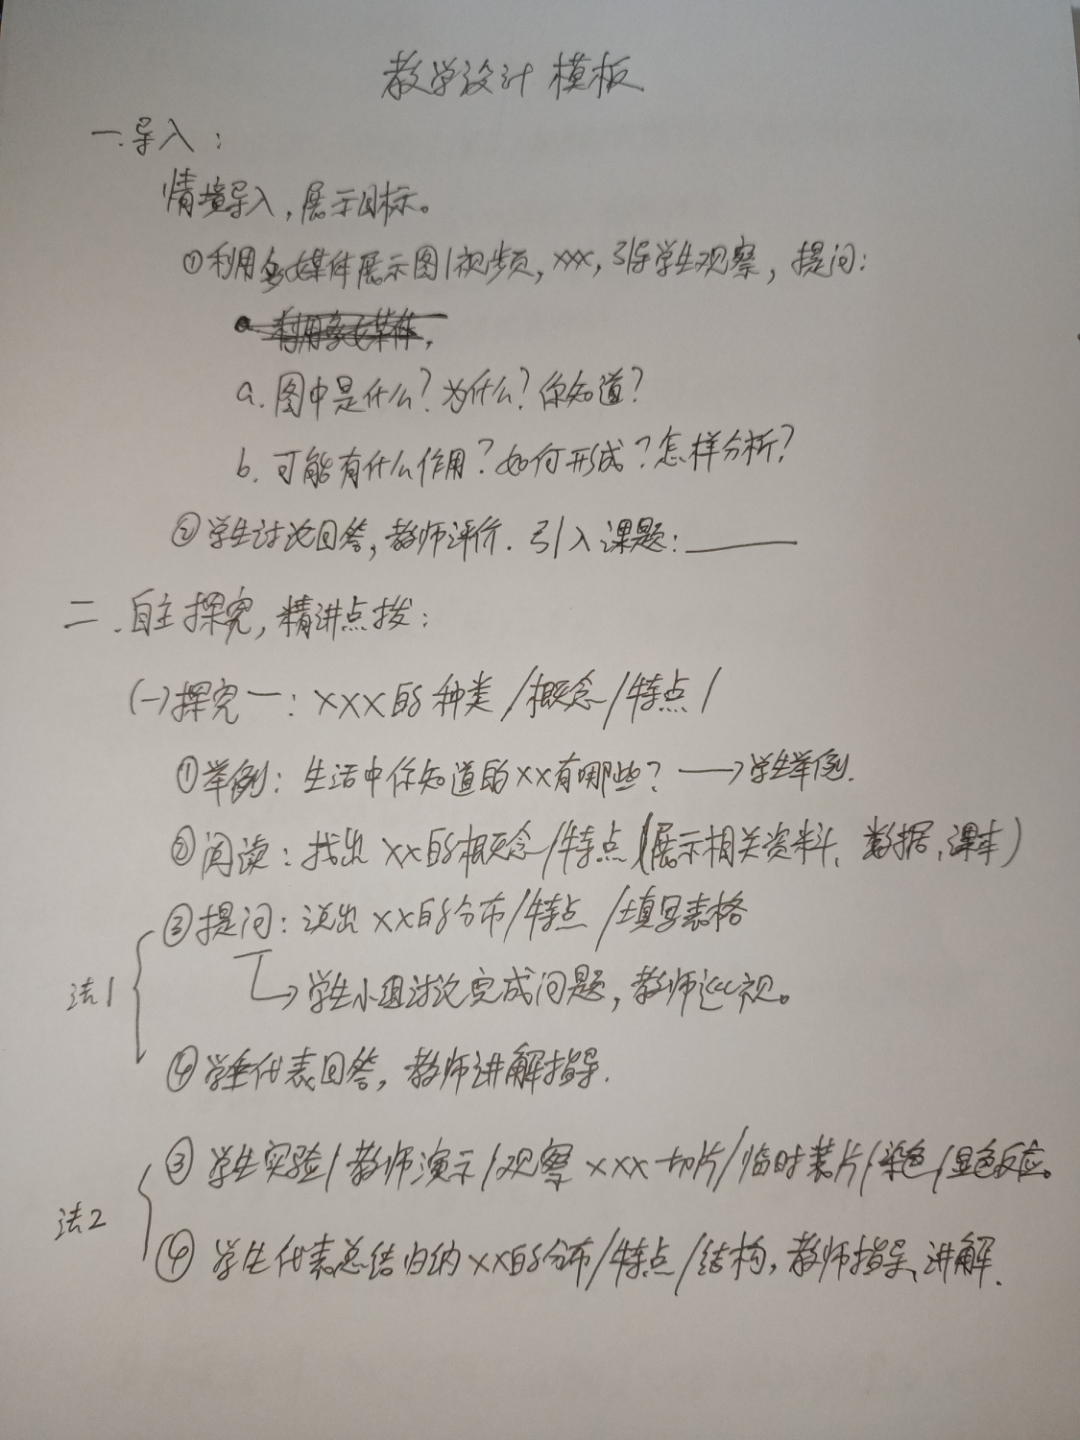 教学设计 模板
一.导入：
情境导入，展示目标。
①利用多媒体展示图/视频，xxx，引导学生观察，提问：
a. 利用多媒体，
a. 图中是什么？为什么？你知道？
b. 可能有什么作用？如何形成？怎样分析？
②学生讨论回答，教师评价．引入课题：______
二．自主探究，精讲点拨：
(一)探究一：XXX的种类/概念/特点/
①举例：生活中你知道的xx有哪些？→学生举例．
②阅读：找出xx的概念/特点(展示相关资料、数据、课本)
③提问：说出xx的分布/特点/填写表格
法1 →学生小组讨论完成问题，教师巡视。
④学生代表回答，教师讲解指导．
③学生实验/教师演示/观察xxx切片/临时装片/染色/显色反应。
法2
④学生代表总结归纳xx的分布/特点/结构，教师指导、讲解．